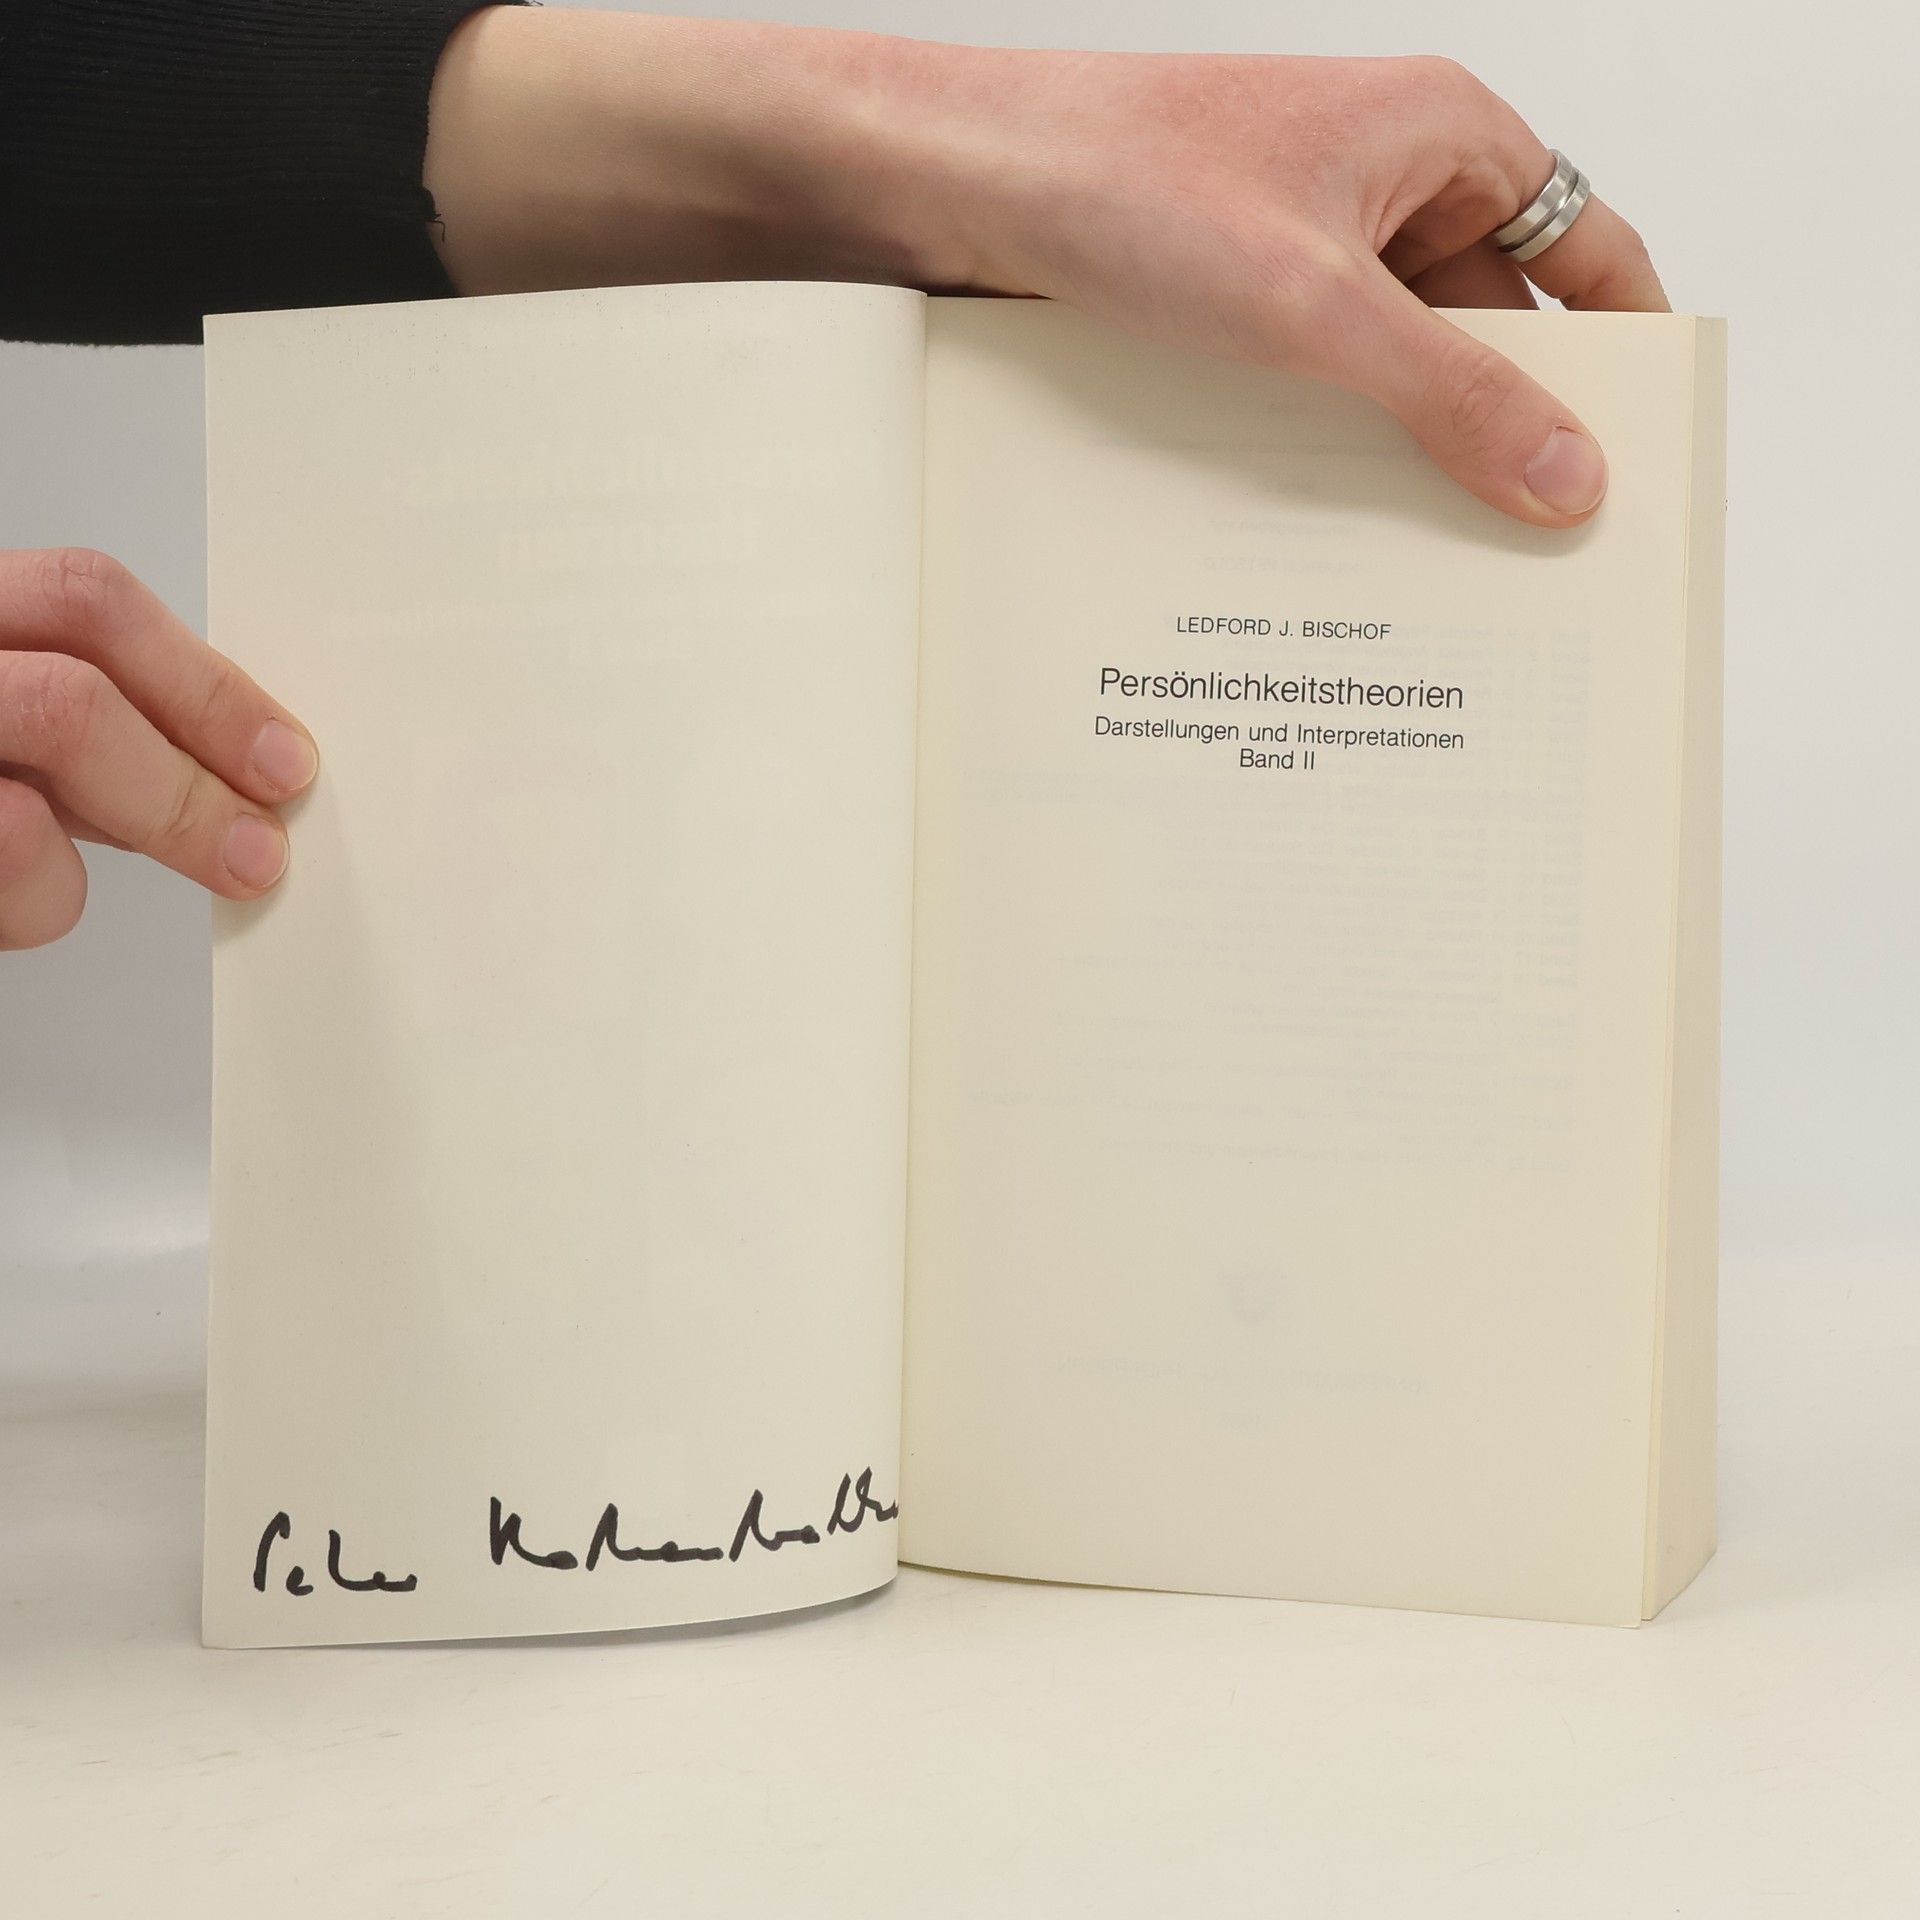 LEDFORD J. BISCHOF
Persönlichkeitstheorien
Darstellungen und Interpretationen
Band II
Peter